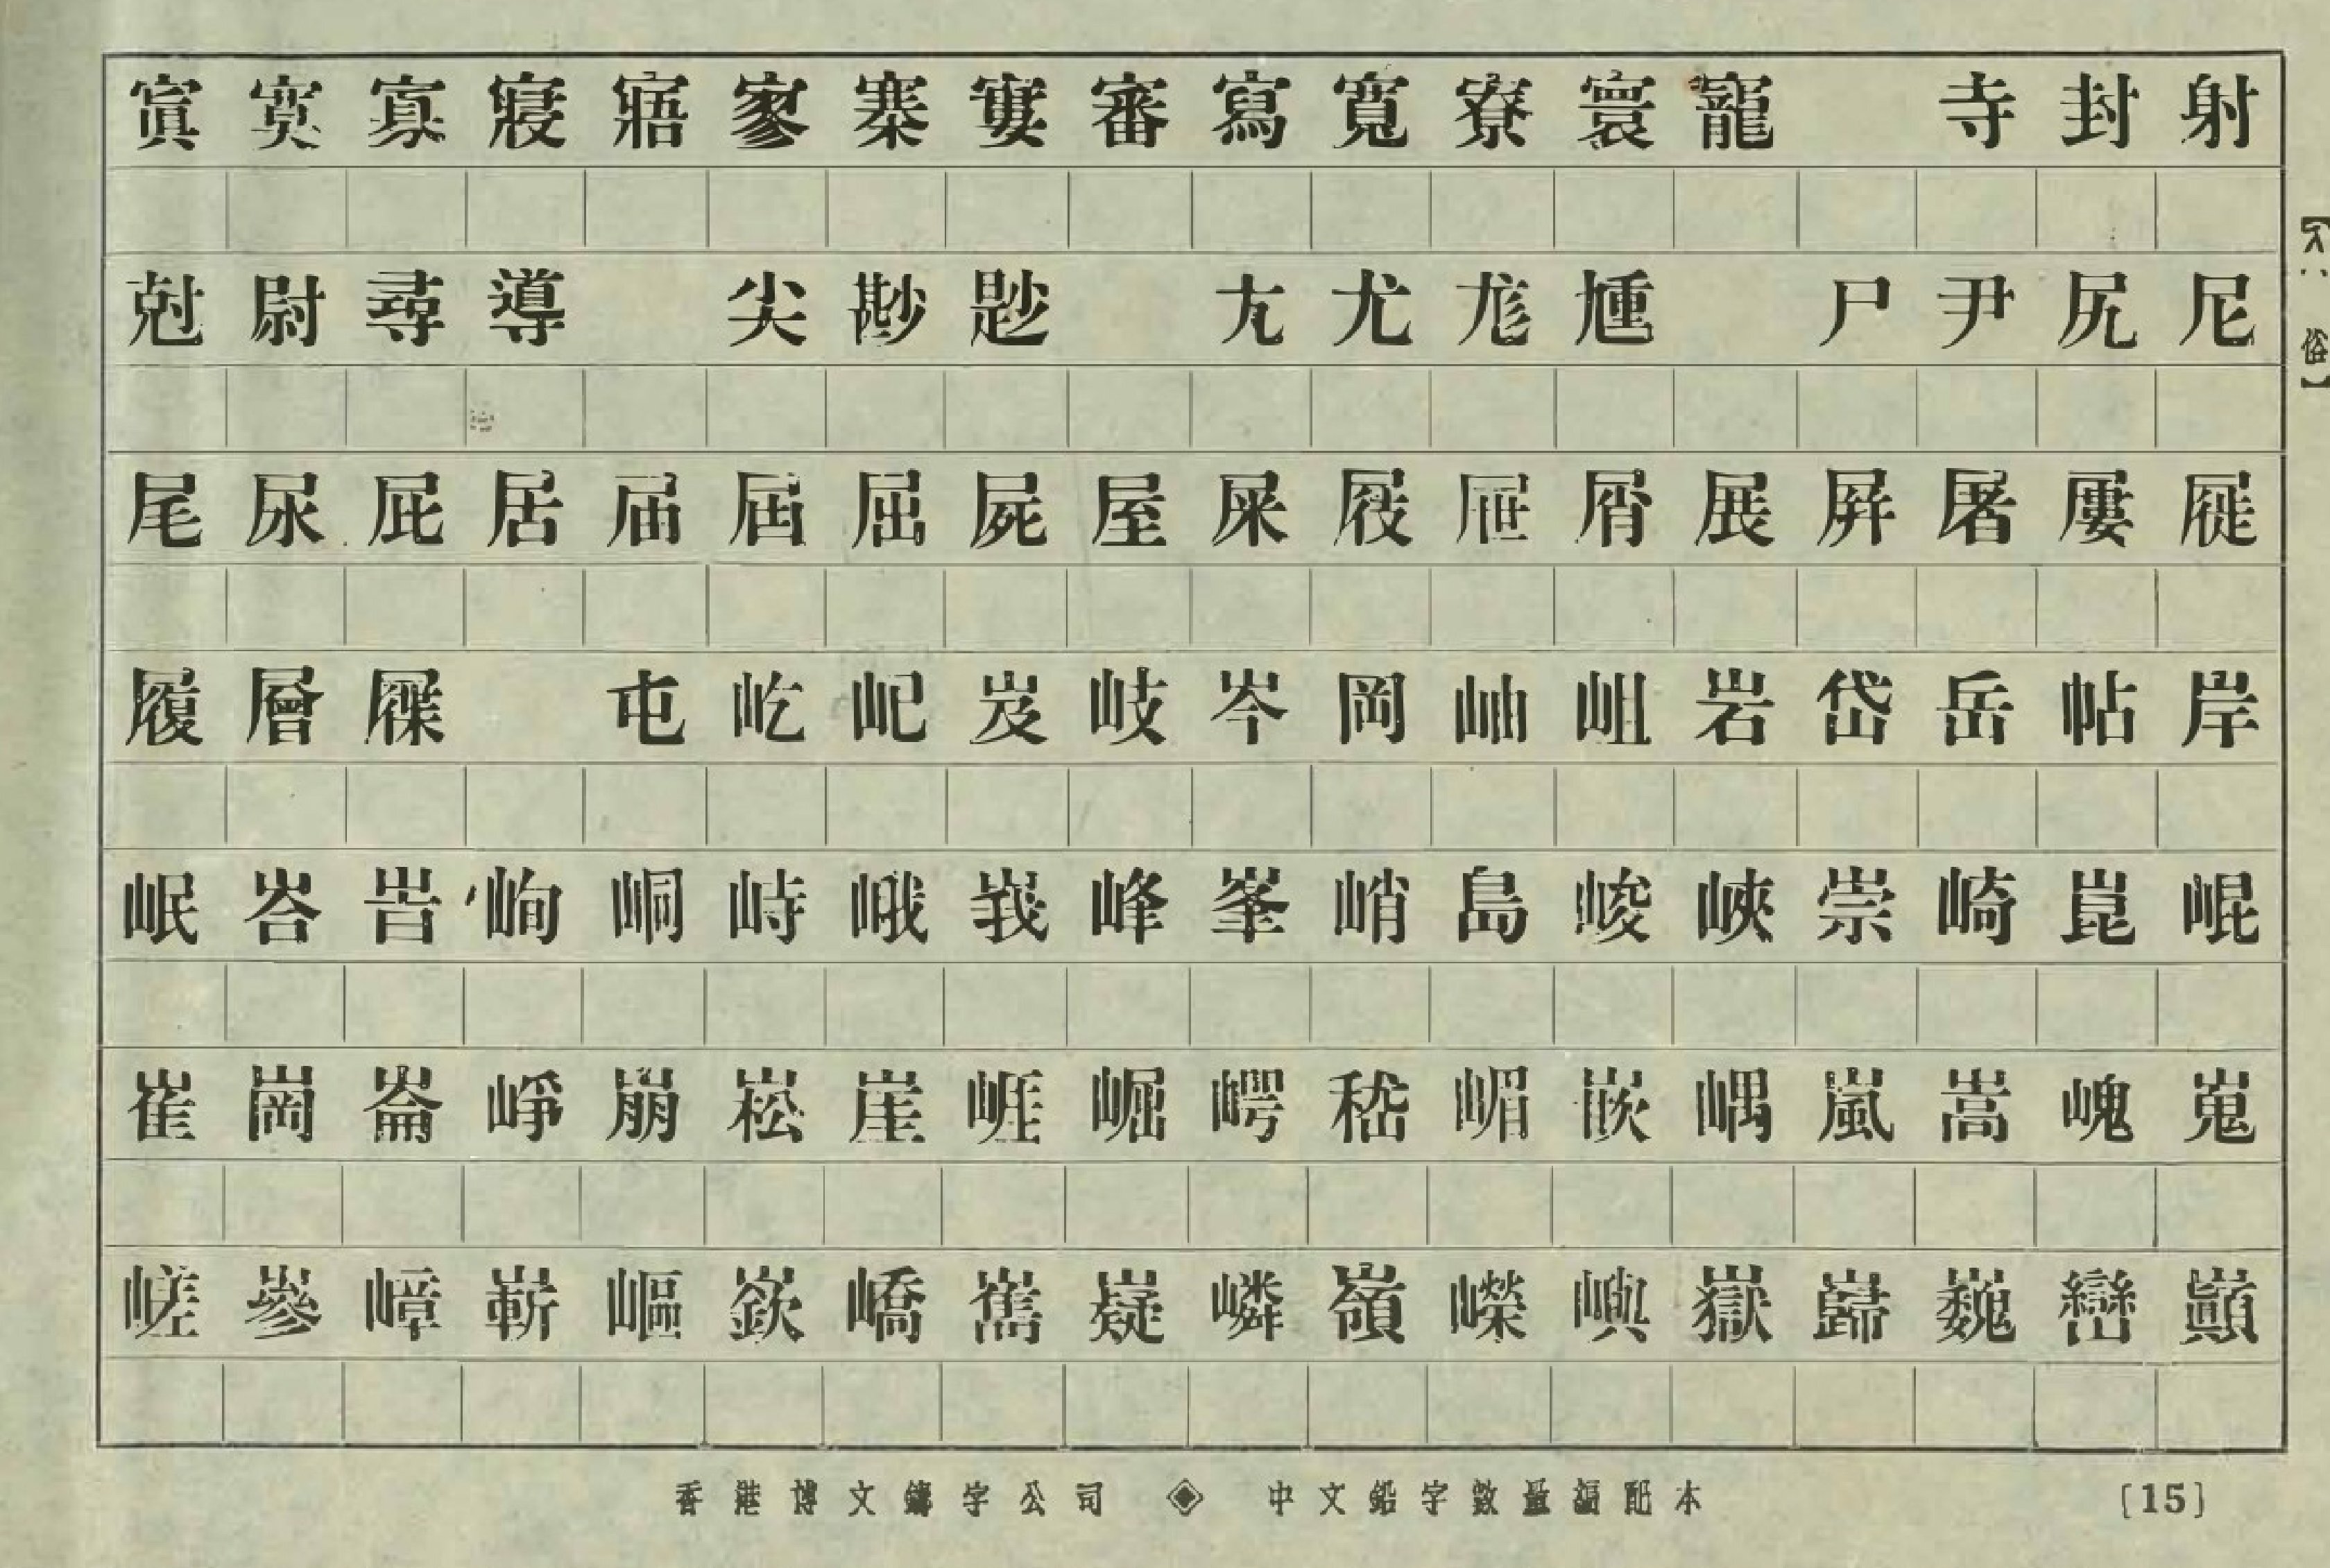 寘寞寡寢寤寥寨寠審寫寬寮寰寵 寺封射
尅尉尋導 尖尠尟 尢尤尨尰 尸尹尻尼
尾尿屁居届屆屈屍屋屎屐屉屑展屛屠屢屣
履層屧 屯屹屺岌岐岑岡岫岨岩岱岳岾岸
岷峇峕峋峒峙峨峩峰峯峭島峻峽崇崎崑崐
崔崗崙崢崩崧崖崕崛崿嵇嵋嵌嵎嵐嵩嵬
嵯嵾嶂嶄嶇嶔嶠嶲嶷嶙嶺嶸嶼嶽巋巍巒巔
香港博文鑄字公司 ◈ 中文鉛字數量編配本 〔15〕